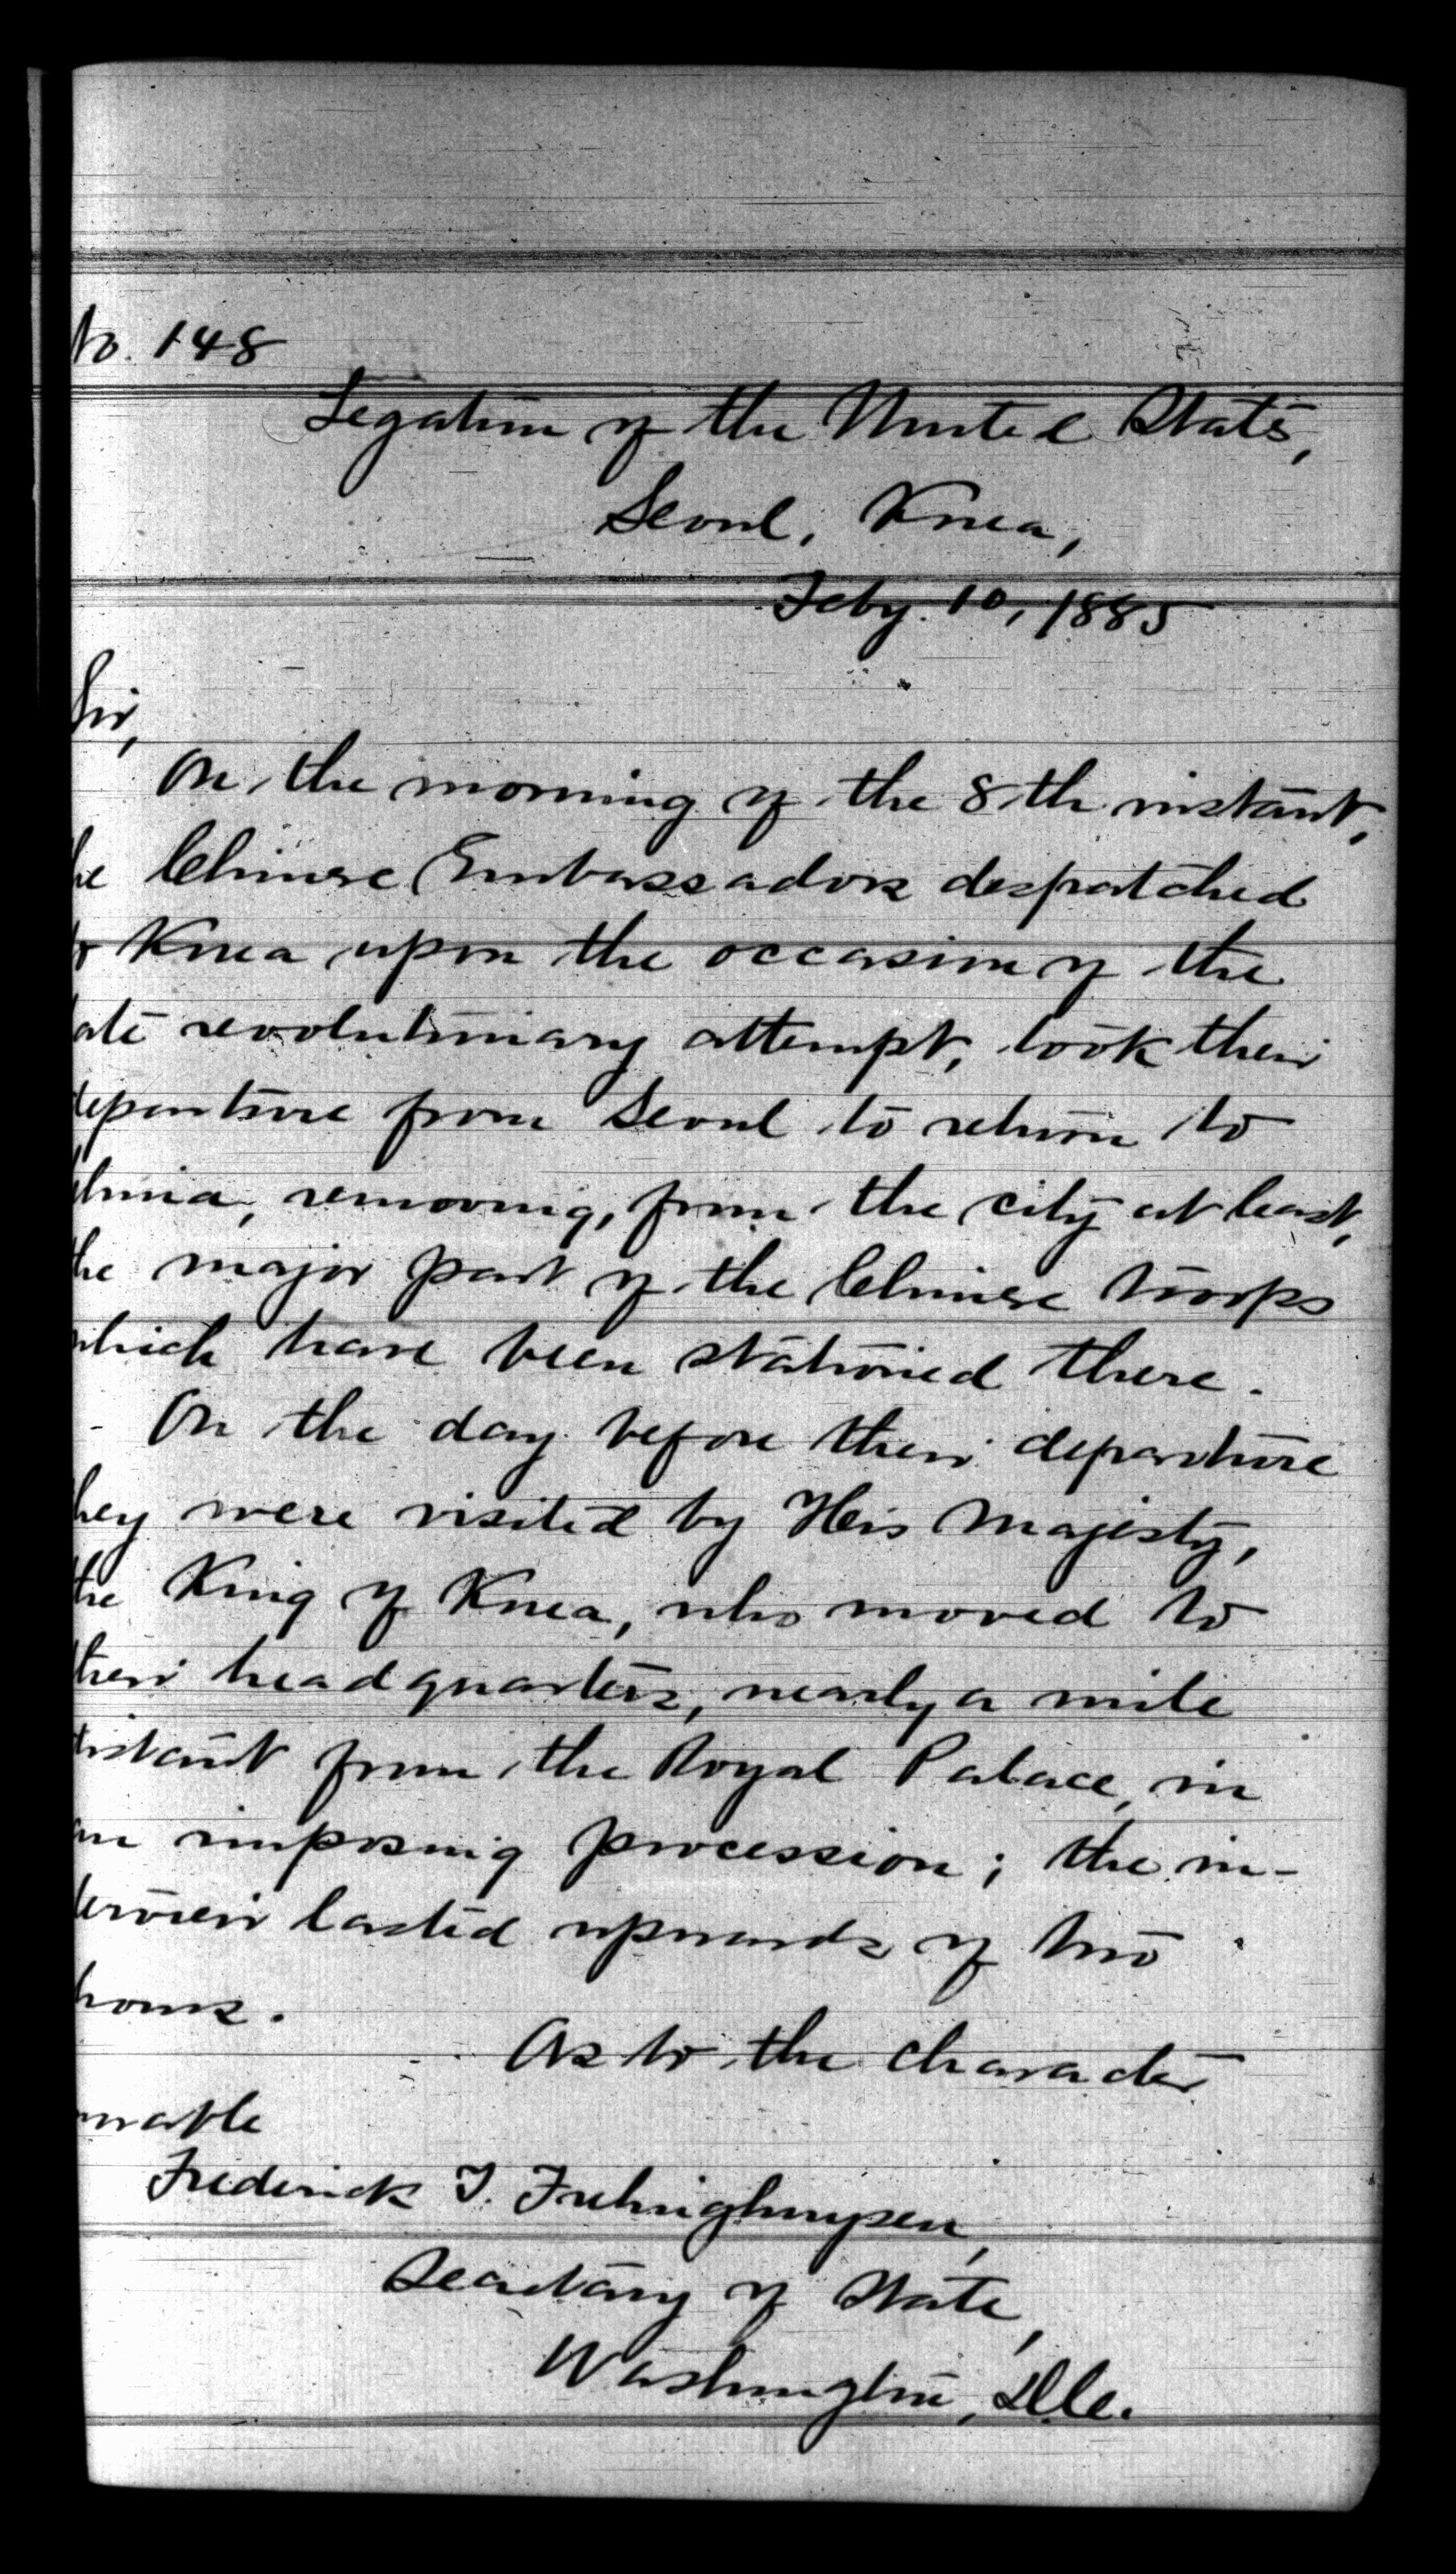 No. 148
Legation of the United States,
Seoul, Korea,
Feby. 10, 1885
Sir,
On the morning of the 8th instant,
he Chinese Embassadors despatched
to Korea upon the occasion of the
ate revolutionary attempt, took their
departure from Seoul to return to
China, removing, from the city at least,
the major part of the Chinese troops
which have been stationed there.
On the day before their departure
hey were visited by His Majesty,
the King of Korea, who moved to
their headquarters, nearly a mile
distant from the Royal Palace, in
an imposing procession; the in-
terview lasted upwards of two
hours.
As to the character
orable
Frederick T. Frelinghuysen,
Secretary of State,
Washington, D.C.